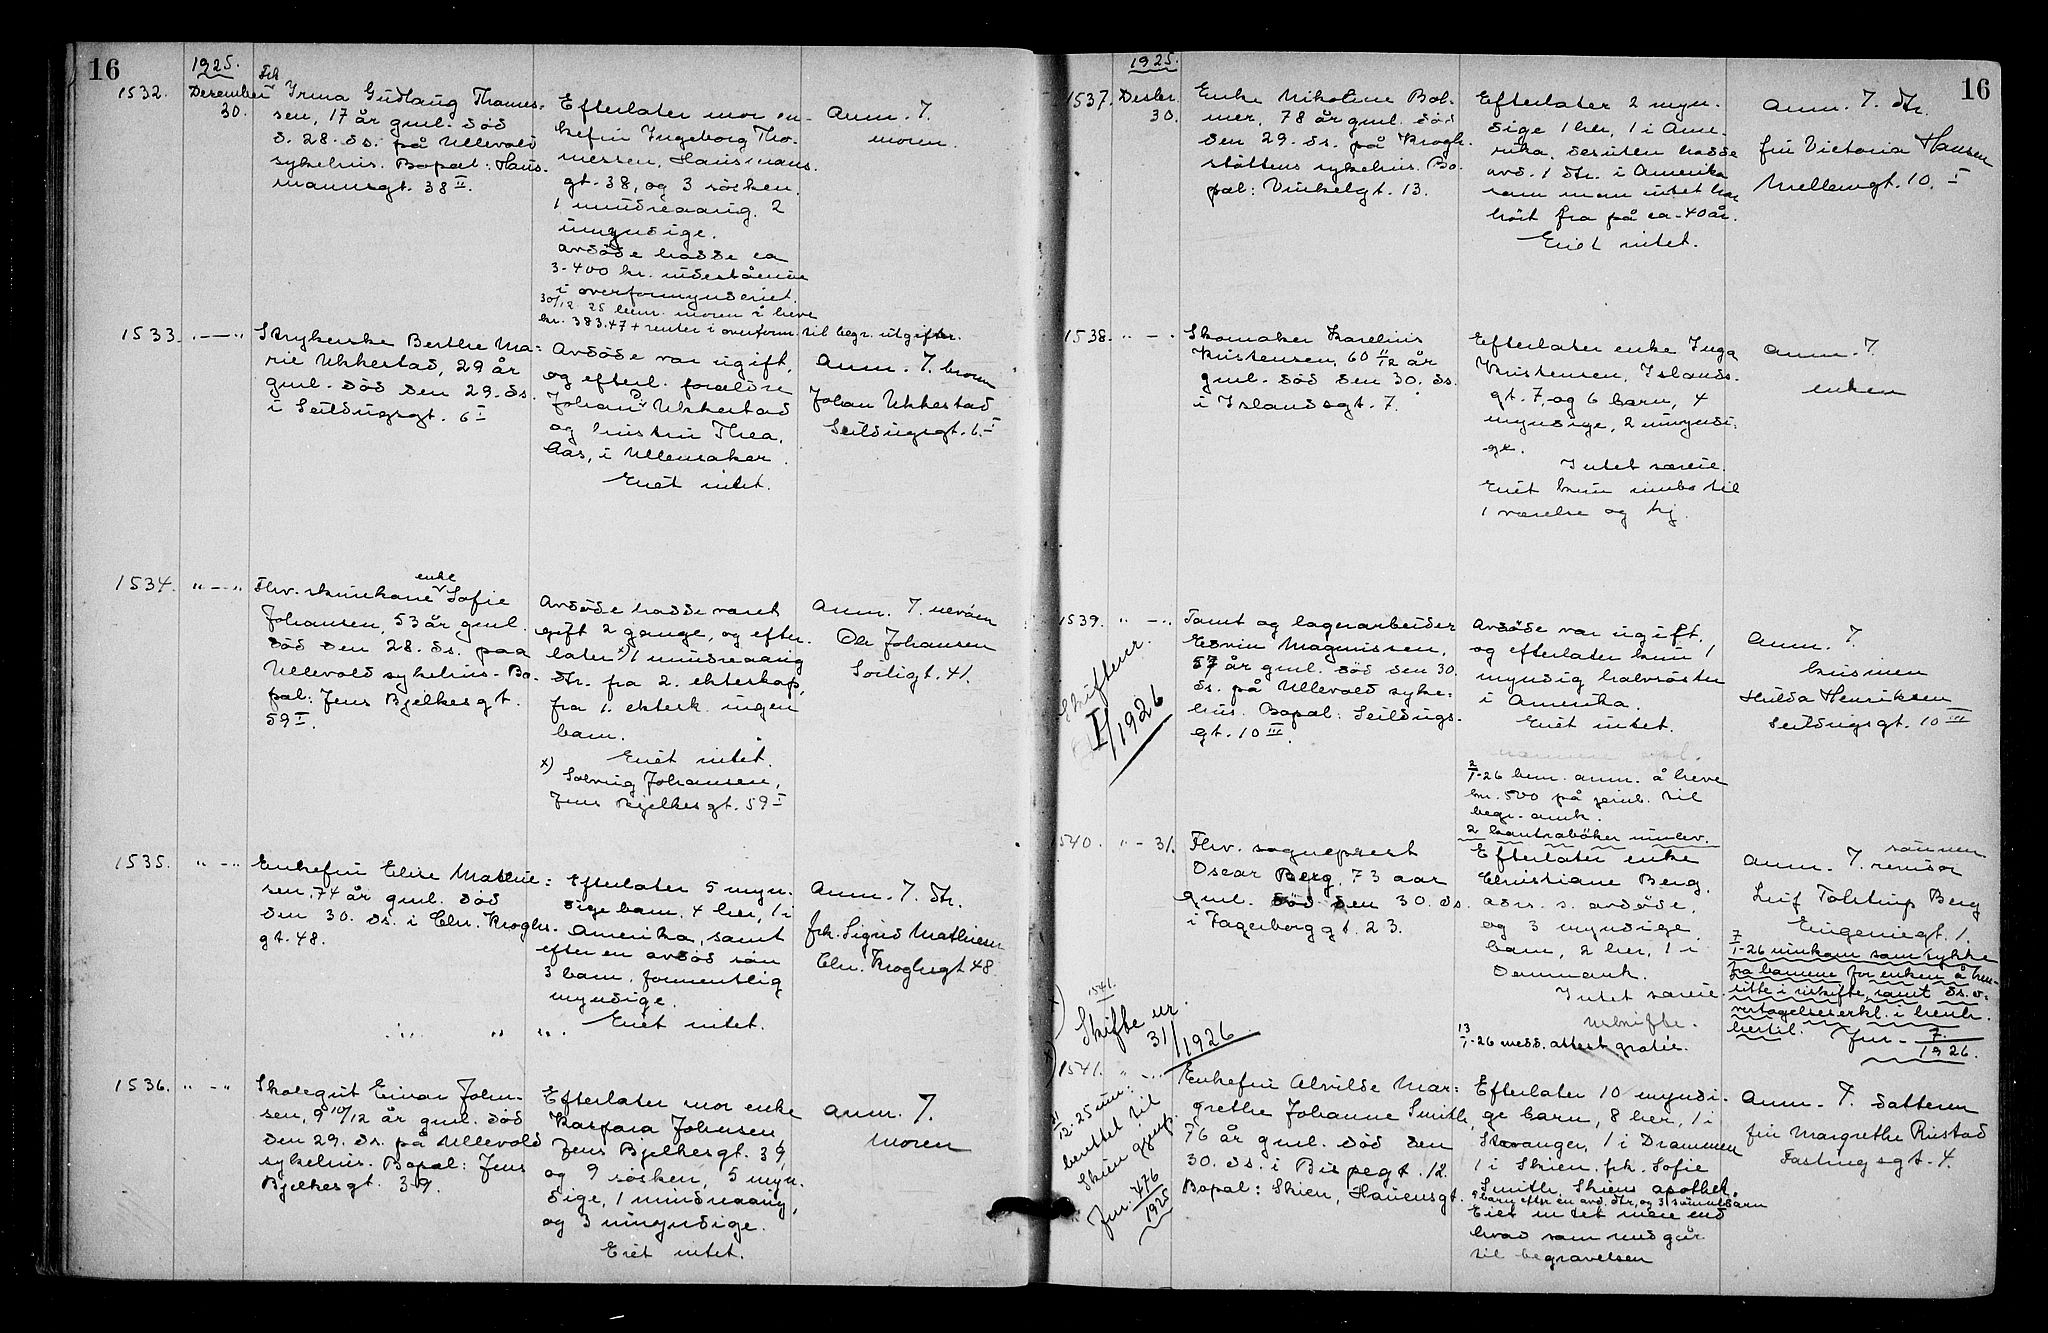 16
1925.
1532.
Desember
30.
Frk
Irma Gudlaug Thomes-
sen, 17 år gml. død
d. 28. ds. på Ullevold
sykehus. Bopæl: Haus-
mannsgt. 38 II.
Efterlater mor en-
kefru Ingeborg Tho-
messen, Hausmans-
gt. 38, og 3 søsken.
1 mindreaarig. 2
umyndige.
Avdøde hadde ca
3-400 kr. indestående
i overformynderiet.
30/12 25 bem. moren å heve
kr. 383.47 + renter i overform. til begr. utgifter.
Anm. F.
moren.
1533. " — "
Strykerske Berthe Ma-
rie Ukkestad, 29 år
gml. død den 29. ds.
i Seildugsgt. 6 I
Avdøde var ugift,
og efterl. forældre
Johan Ukkestad
og hustru Thea,
Aas, i Ullensaker.
Eiet intet.
Anm. F. broren
Johan Ukkestad
Seildugsgt. 6. I
1534. " — "
enke
Fhv. skurekone Sofie
Johansen, 53 år gml.
død den 28. ds. paa
Ullevold sykehus. Bo-
pæl: Jens Bjelkesgt.
59 I.
Avdøde hadde været
gift 2 gange, og efter-
later x) 1 mindreaarig
dtr. fra 2. ekteskap,
fra 1. ektesk. ingen
barn.
Eiet intet.
x) Solveig Johansen,
Jens Bjelkesgt. 59 I
Anm. F. nevøen
Ole Johansen
Toiligt. 41.
1535. " — "
Enkefru Elise Mathie-
sen, 74 år gml. død
den 30. ds. i Chr. Kroghs-
gt. 48.
Efterlater 5 myn-
dige barn, 4 her, 1 i
Amerika, samt
efter en avdød søn
3 barn, formentlig
myndige.
Eiet intet.
Anm. F. dtr.
frk. Sigrid Mathiesen
Chr. Kroghsgt 48.
1536. " — "
Skolegut Einar Johan-
sen, 9 10/12 år gml. død
den 29. ds. på Ullevold
sykehus. Bopæl: Jens
Bjelkesgt. 39.
Efterlater mor enke
Kaspara Johansen
Jens Bjelkesgt. 39,
og 9 søsken, 5 myn-
dige, 1 mindreaarig,
og 3 umyndige.
Eiet intet.
Anm. F.
Moren
1925.
16
1537. Desbr.
30.
Enke Nikoline Bol-
mer, 78 år gml. død
den 29. ds. på Krogh-
støttens sykehus. Bo-
pæl: Vinkelgt. 13.
Efterlater 2 myn-
dige 1 her, 1 i Ame-
rika, desuten hadde
avd. 1 dtr. i Amerika
som man intet har
hørt fra på ca. 40 år.
Eiet intet.
Anm. F. dtr.
fru Victoria Hansen
Mellemgt. 10. I
1538. " — "
Skomaker Karelius
Kristensen, 60 11/12 år
gml. død den 30. ds.
i Islandsgt. 7.
Efterlater enke Inga
Kristensen, Islands-
gt. 7, og 6 barn, 4
myndige, 2 umyndi-
ge.
Intet særeie.
Eiet kun innbo til
1 værelse og kj.
Anm. F.
enken
1539. " — "
Skifteur.
I/1926
Tomt og lagerarbeider
Edvin Magnussen,
57 år gml. død den 30.
ds. på Ullevold syke-
hus. Bopæl: Seildugs-
gt. 10 III.
Avdøde var ugift,
og efterlater kun 1
myndig halvsøster
i Amerika.
Eiet intet.
2/1-26 bem. anm. å heve
kr. 500 på til
begr. omk.
2 kontrabøker innlev.
Anm. F.
kusinen
Hulda Henriksen
Seildugsgt. 10 III
1540. " — 31.
Fhv. sogneprest
Oscar Berg, 73 aar
gml. død den 30. ds.
i Fagerborggt. 23.
Efterlater enke
Christiane Berg,
adr. s. avdøde,
og 3 myndige
barn, 2 her, 1 i
Danmark.
Intet særeie.
Uskifte.
13/1-26 medd. attest gratis.
sønnen
Anm. F. revisor
Leif Tolstrup Berg
Eugeniegt. 1.
7/1-26 innkom samtykke
fra barnene for enken å hen-
sitte i uskifte, samt ds. o-
vertagelseserkl. i henh.
hertil. Jnr. 7/1926.
1541.
Skifte ur
31/1926
1541. " — "
12-25 inn-
berettet til
Skien
Jnr. 476/1925
Enkefru Alvilde Mar-
grethe Johanne Smith,
76 år gml. død den
30. ds. i Bispegt. 12.
Bopæl: Skien, Hauensgt.
Efterlater 10 myndi-
ge barn, 8 her, 1 i
Stavanger, 1 i Drammen
1 i Skien. frk. Sofie
Smith, Skiens apothek.
barn efter en avd. dtr. og 3
Eiet intet mere end
hvad som medgår
til begravelsen
Anm. F. datteren
fru Margrethe Rustad
Fastingsgt. 4.